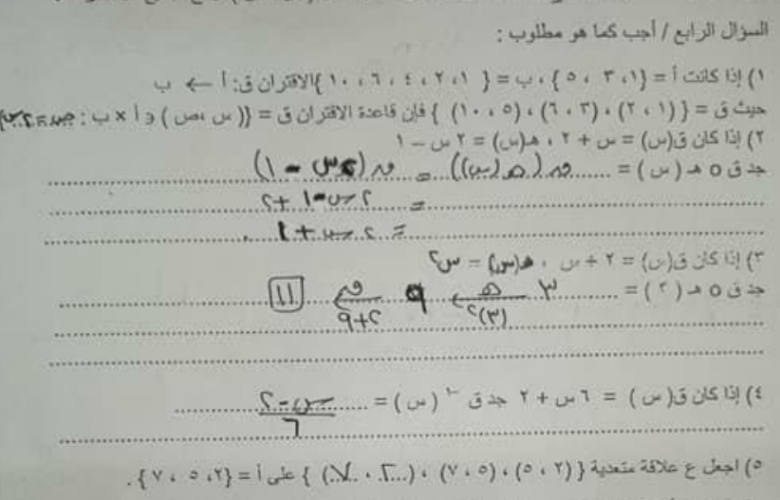 السؤال الرابع / أجب كما هو مطلوب :
١) إذا كانت أ = {١، ٣ ، ٥} ، ب = { ١، ٢ ، ٤ ، ٦ ، ١٠ }الاقتران ق: أ ← ب
حيث ق = { (١ ، ٢) ، (٣ ، ٦) ، (٥ ، ١٠) } فإن قاعدة الاقتران ق = {(س ،ص ) و أ × ب : ص = ٢س
٢) إذا كان ق(س) = س + ٢ ، هـ(س) = ٢ س − ١
جد ق ٥ هـ ( س ) = ........ ق (هـ (س)) = ق (٢س - ١)
= ٢س-١ + ٢
= ٢س + ١
٣) إذا كان ق(س) = ٢ + س ، هـ(س) = س٢
جد ق ٥ هـ ( ٢ ) = ........ ٣ هـ (٣)٢ ٩ ق ٢+٩ ١١
٤) إذا كان ق( س ) = ٦ س + ٢ جد ق -١ ( س ) = س-٢ / ٦
٥) اجعل ع علاقة متعدية { (٢ ، ٥) ، (٥ ، ٧) ، (٢ ، ٧) } على أ = {٢، ٥ ، ٧ }.